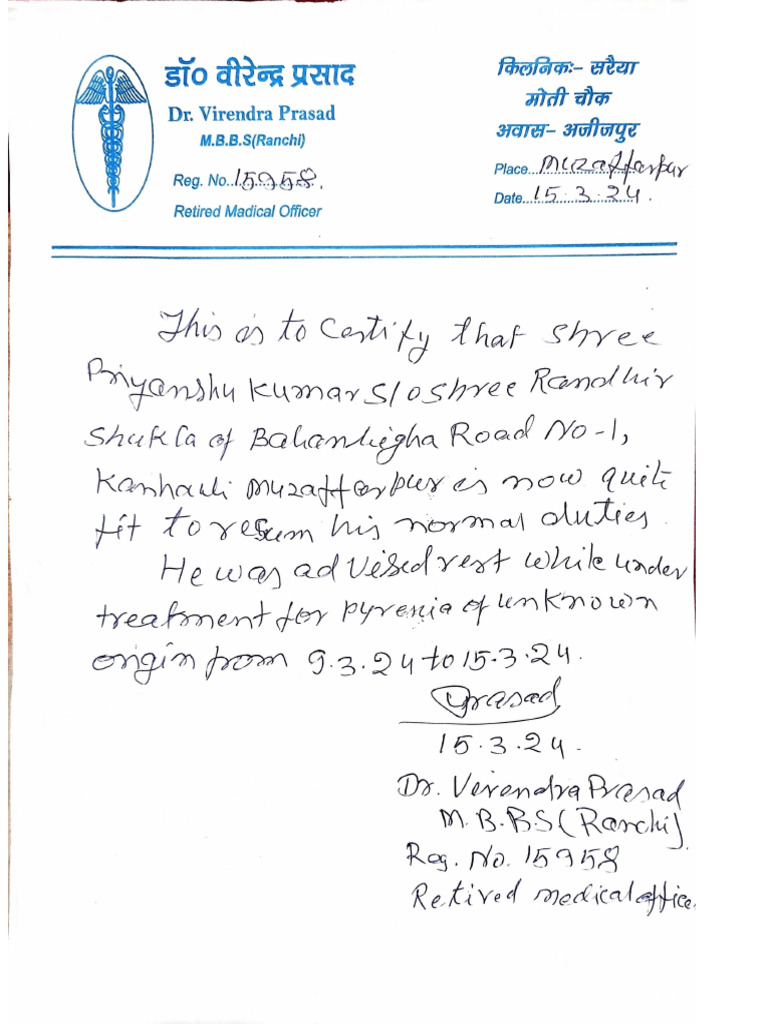 डॉ० वीरेन्द्र प्रसाद
Dr. Virendra Prasad
M.B.B.S(Ranchi)
Reg. No. 15958.
Retired Madical Officer
किलनिकः- सरैया
मोती चौक
अवास- अजीजपुर
Place. Muzaffarpur
Date. 15.3.24.
This is to Certify that Shree
Priyanshu Kumar S/o Shree Randhir
Shukla of Road No-1,
Muzaffarpur is now quite
fit to resum his normal duties.
He was advised rest while under
treatment for pyrexia of unknown
origin from 9.3.24 to 15.3.24.
Prasad
15.3.24.
Dr. Virendra Prasad
M.B.B.S (Ranchi).
Reg. No. 15958
Retired medical office.